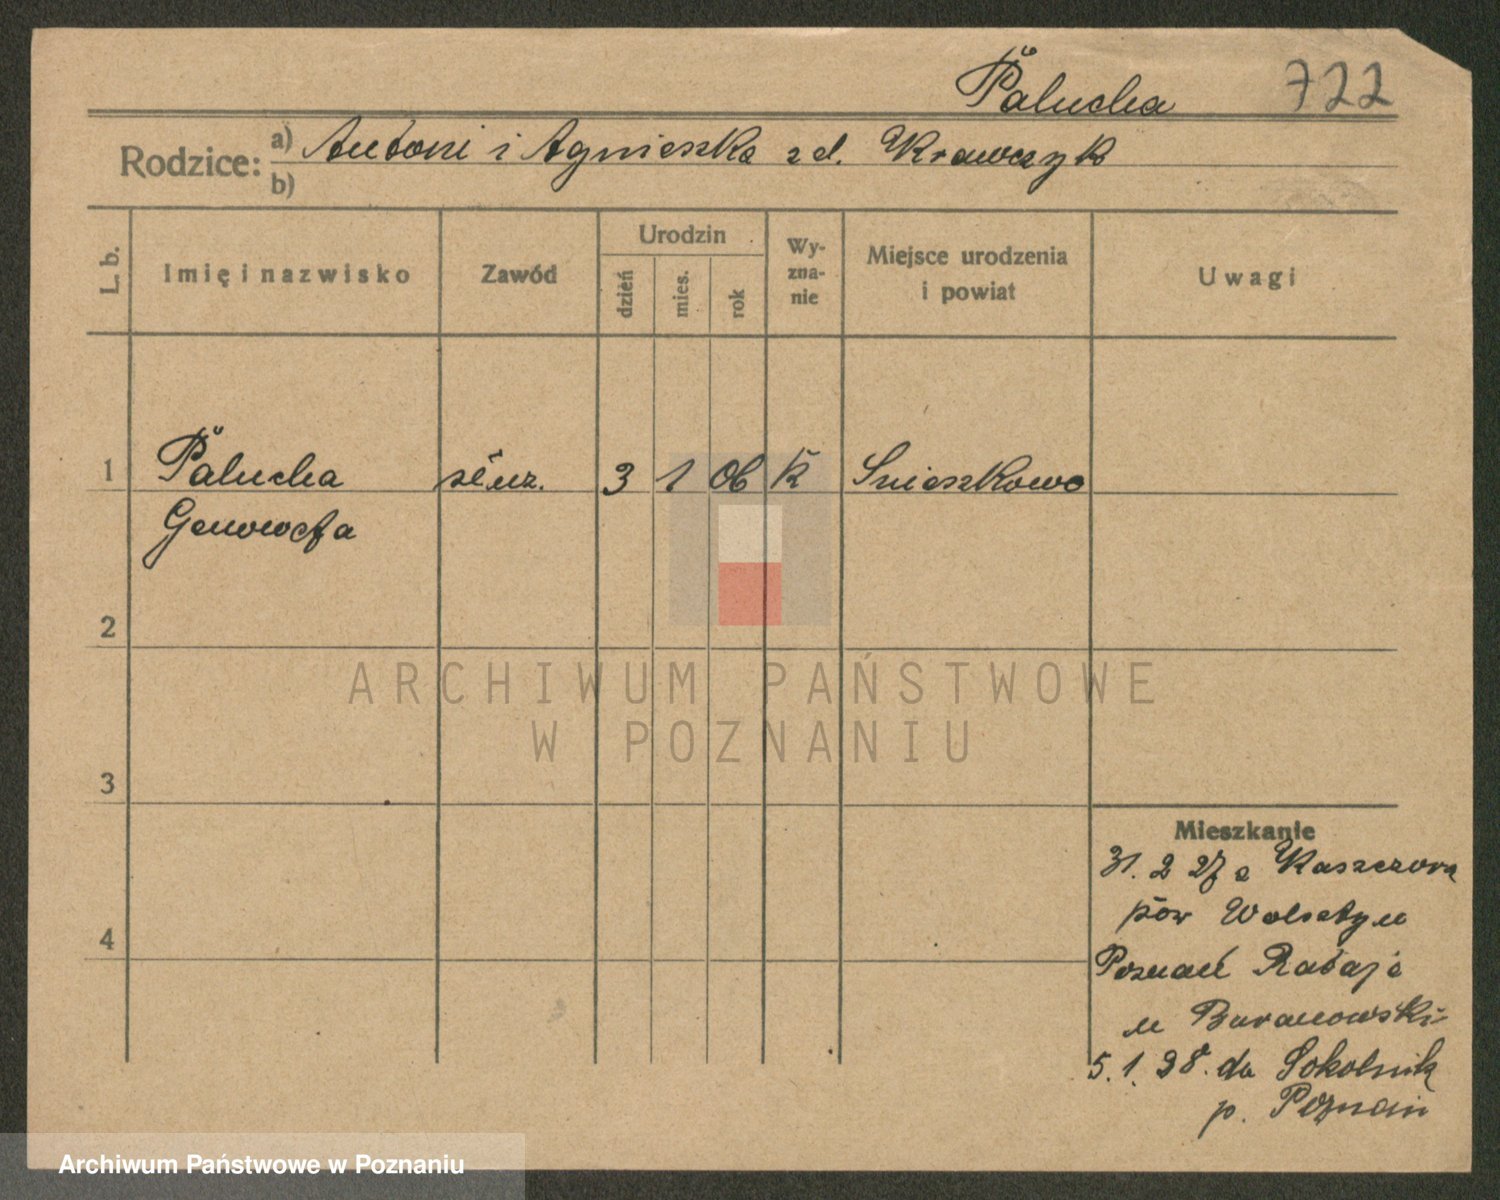 Palucha 722
Rodzice: a) Antoni i Agnieszka z d. Krawczyk
b)
L. b. Imię i nazwisko Zawód Urodzin dzień mies. rok Wy-zna-nie Miejsce urodzenia i powiat Uwagi
1 Palucha służ. 3 1 06 k Snieszkowo
Genowefa
2
3
4
Mieszkanie
31. 2 27 z Kaszczora
pow Wolsztyn
Poznań Rataje
u Baranowski
5. 1. 28. do Sokolnik
p. Poznań
ARCHIWUM PAŃSTWOWE
W POZNANIU
Archiwum Państwowe w Poznaniu